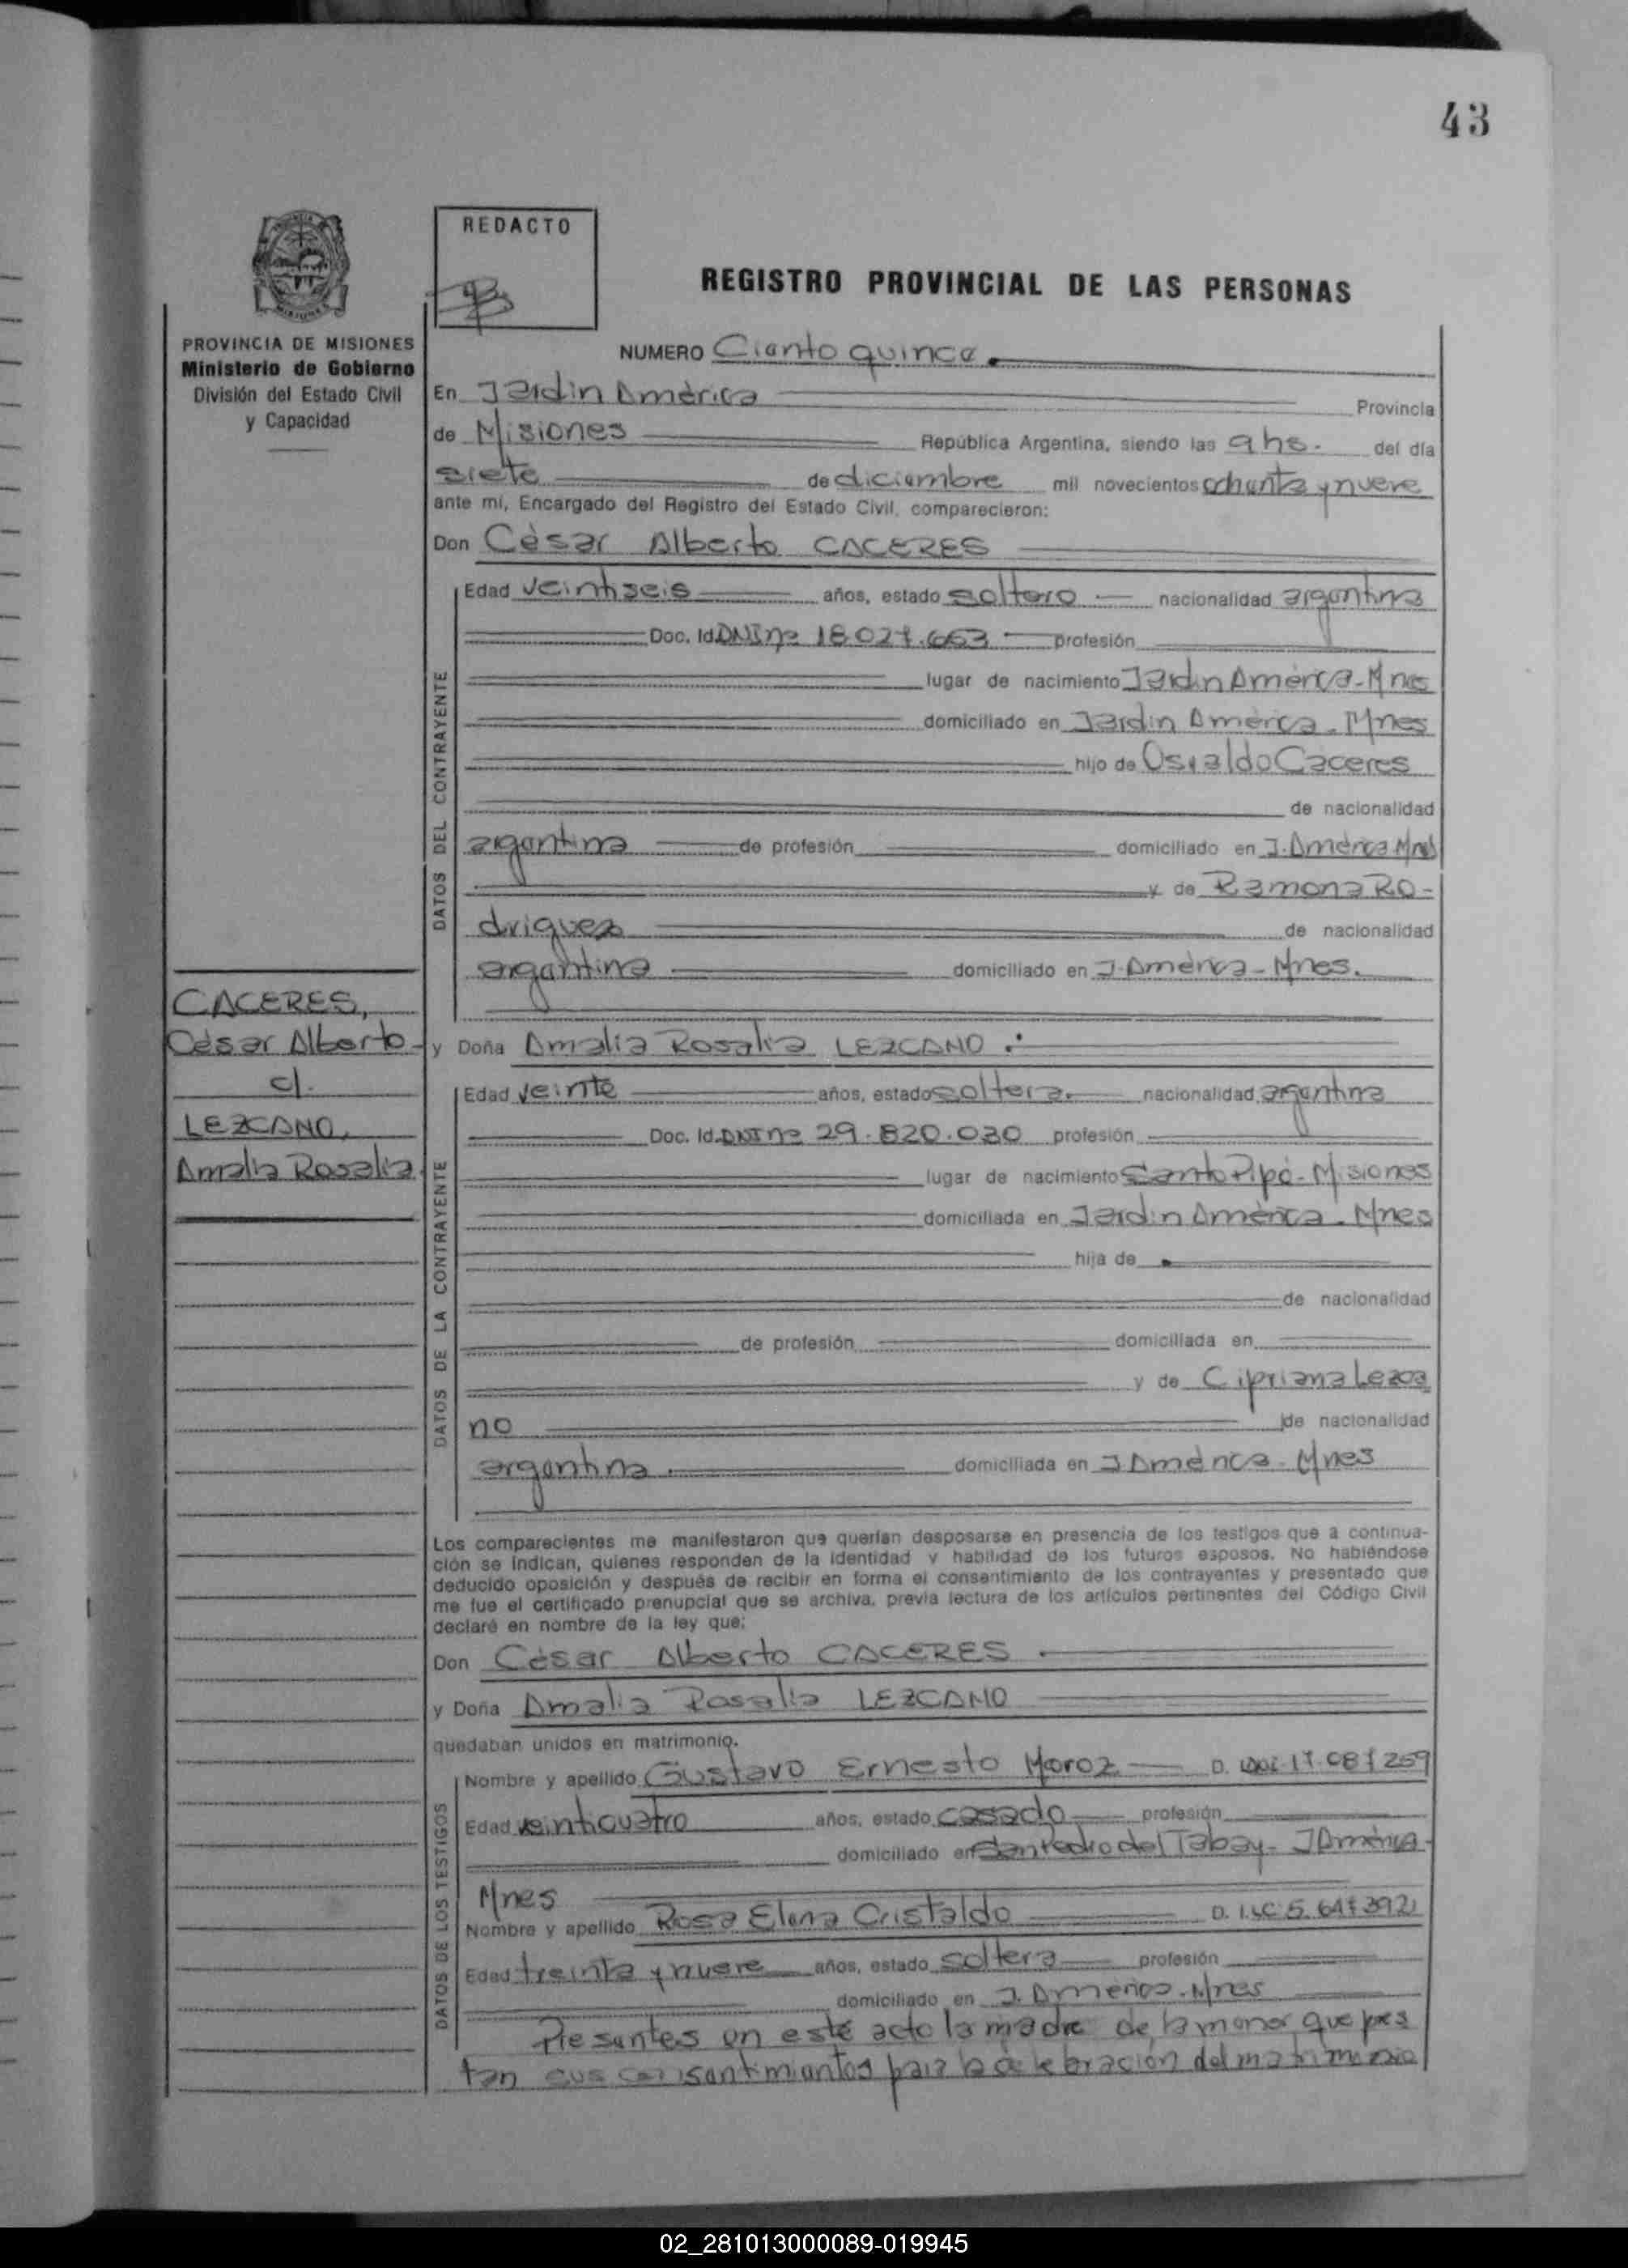 43
REDACTO
REGISTRO PROVINCIAL DE LAS PERSONAS
PROVINCIA DE MISIONES
Ministerio de Gobierno
División del Estado Civil
y Capacidad
NUMERO Ciento quince
En Jardin América Provincia
de Misiones República Argentina, siendo las 9 hs. del día
siete de diciembre mil novecientos ochenta y nueve
ante mí, Encargado del Registro del Estado Civil, comparecieron:
Don César Alberto CACERES
DATOS DEL CONTRAYENTE
Edad veintiseis años, estado soltero nacionalidad argentina
Doc. Id. DNI nº 18.027.663 profesión
lugar de nacimiento Jardin América - Mnes
domiciliado en Jardin América - Mnes
hijo de Osvaldo Caceres
de nacionalidad
argentina de profesión domiciliado en J. América Mnes
y de Ramona Ro-
driguez de nacionalidad
argentina domiciliado en J. América - Mnes.
CACERES,
César Alberto
c/.
LEZCANO,
Amalia Rosalia
y Doña Amalia Rosalia LEZCANO
DATOS DE LA CONTRAYENTE
Edad veinte años, estado soltera nacionalidad argentina
Doc. Id. DNI nº 29.820.030 profesión
lugar de nacimiento Santo Pipó - Misiones
domiciliada en Jardin América - Mnes
hija de
de nacionalidad
de profesión domiciliada en
y de Cipriana Lezca
no de nacionalidad
argentina domiciliada en J América - Mnes
Los comparecientes me manifestaron que querían desposarse en presencia de los testigos que a continua-
ción se indican, quienes responden de la identidad y habilidad de los futuros esposos. No habiéndose
deducido oposición y después de recibir en forma el consentimiento de los contrayentes y presentado que
me fue el certificado prenupcial que se archiva, previa lectura de los artículos pertinentes del Código Civil
declaré en nombre de la ley que:
Don César Alberto CACERES
y Doña Amalia Rosalia LEZCANO
quedaban unidos en matrimonio.
DATOS DE LOS TESTIGOS
Nombre y apellido Gustavo Ernesto Moroz D. 17.087259
Edad veinticuatro años, estado casado profesión
domiciliado en San Pedro del Tabay - J América -
Mnes
Nombre y apellido Rosa Elena Cristaldo D. I. LC 5.647392
Edad treinta y nueve años, estado soltera profesión
domiciliado en J. América - Mnes
Presentes en este acto la madre de la menor que pres
tan sus consentimientos para la celebración del matrimonio
02_281013000089-019945